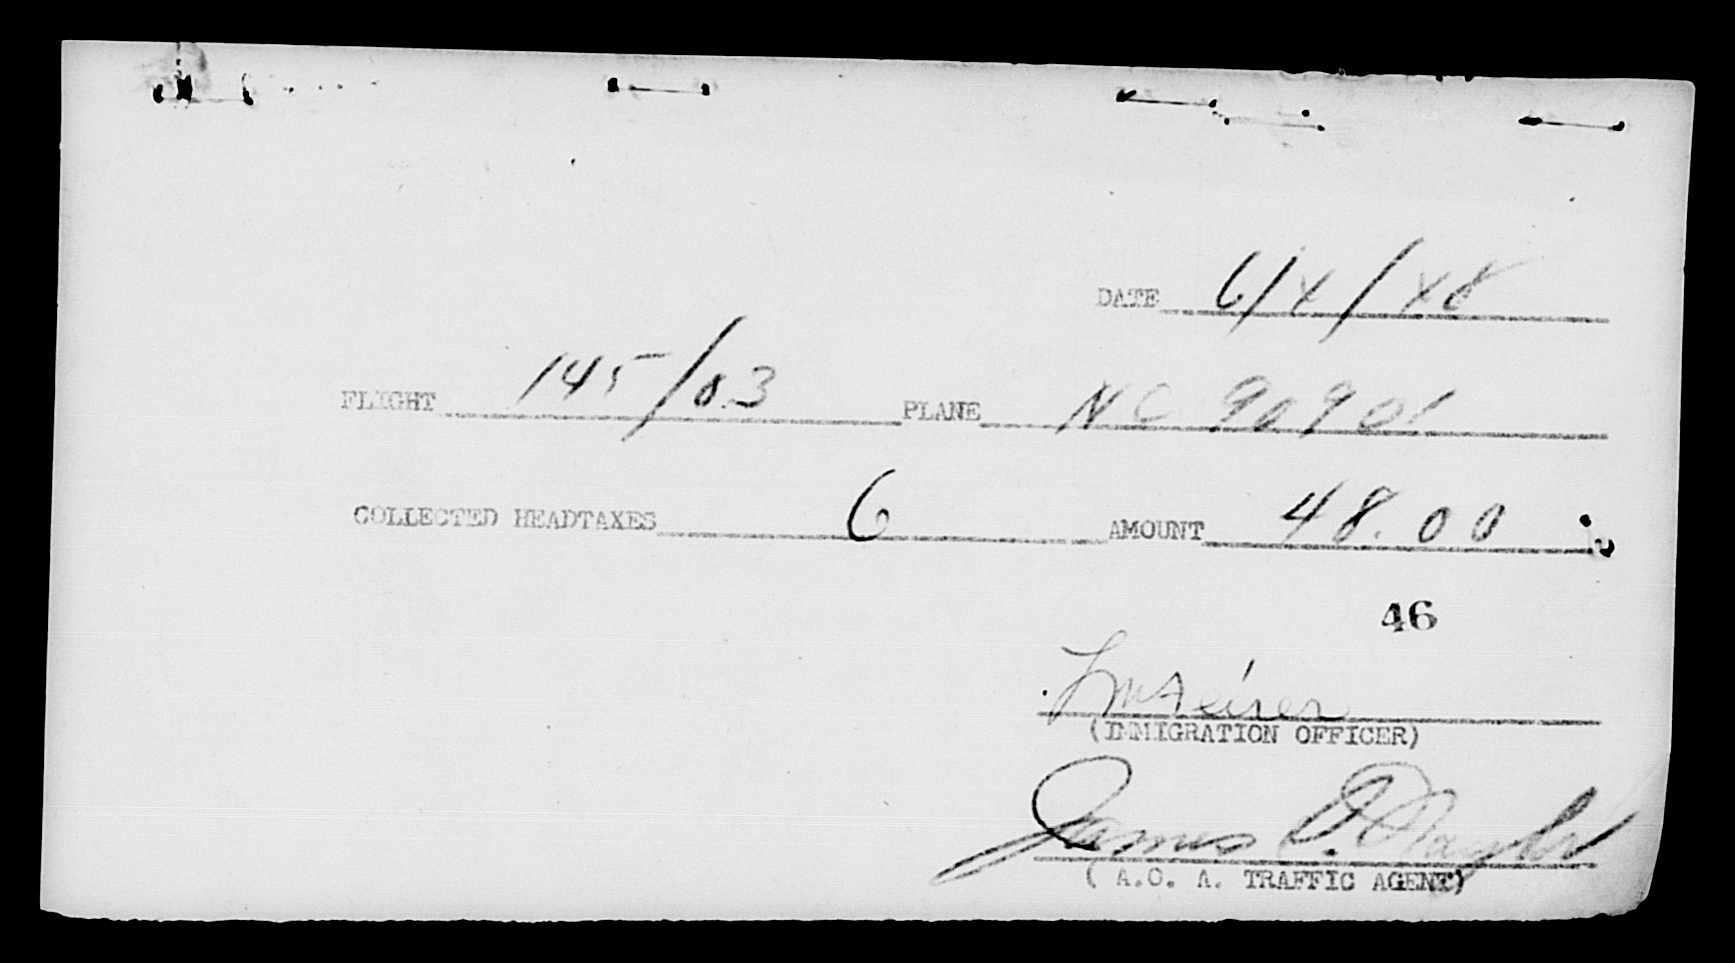 DATE 6/4/48
FLIGHT 145/03 PLANE NC 90901
COLLECTED HEADTAXES 6 AMOUNT 48.00
46
(IMMIGRATION OFFICER)
James
( A.O. A. TRAFFIC AGENT)